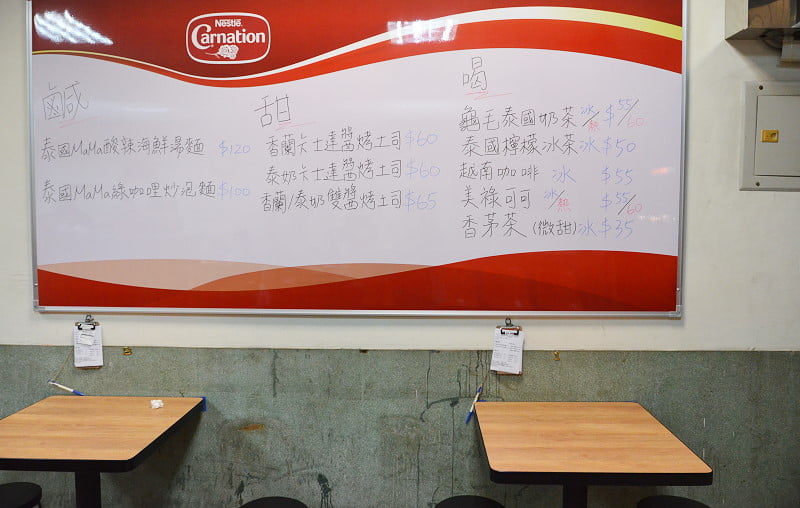 Nestlé
Carnation
鹹
泰國MaMa酸辣海鮮湯麵 $120
泰國MaMa綠咖哩炒泡麵 $100
甜
香蘭卡士達醬烤土司 $60
泰奶卡士達醬烤土司 $60
香蘭/泰奶雙醬烤土司 $65
喝
龜毛泰國奶茶 冰/熱 $55/60
泰國檸檬冰茶 冰 $50
越南咖啡 冰 $55
美祿可可 冰/熱 $55/60
香茅茶 (微甜) 冰 $35